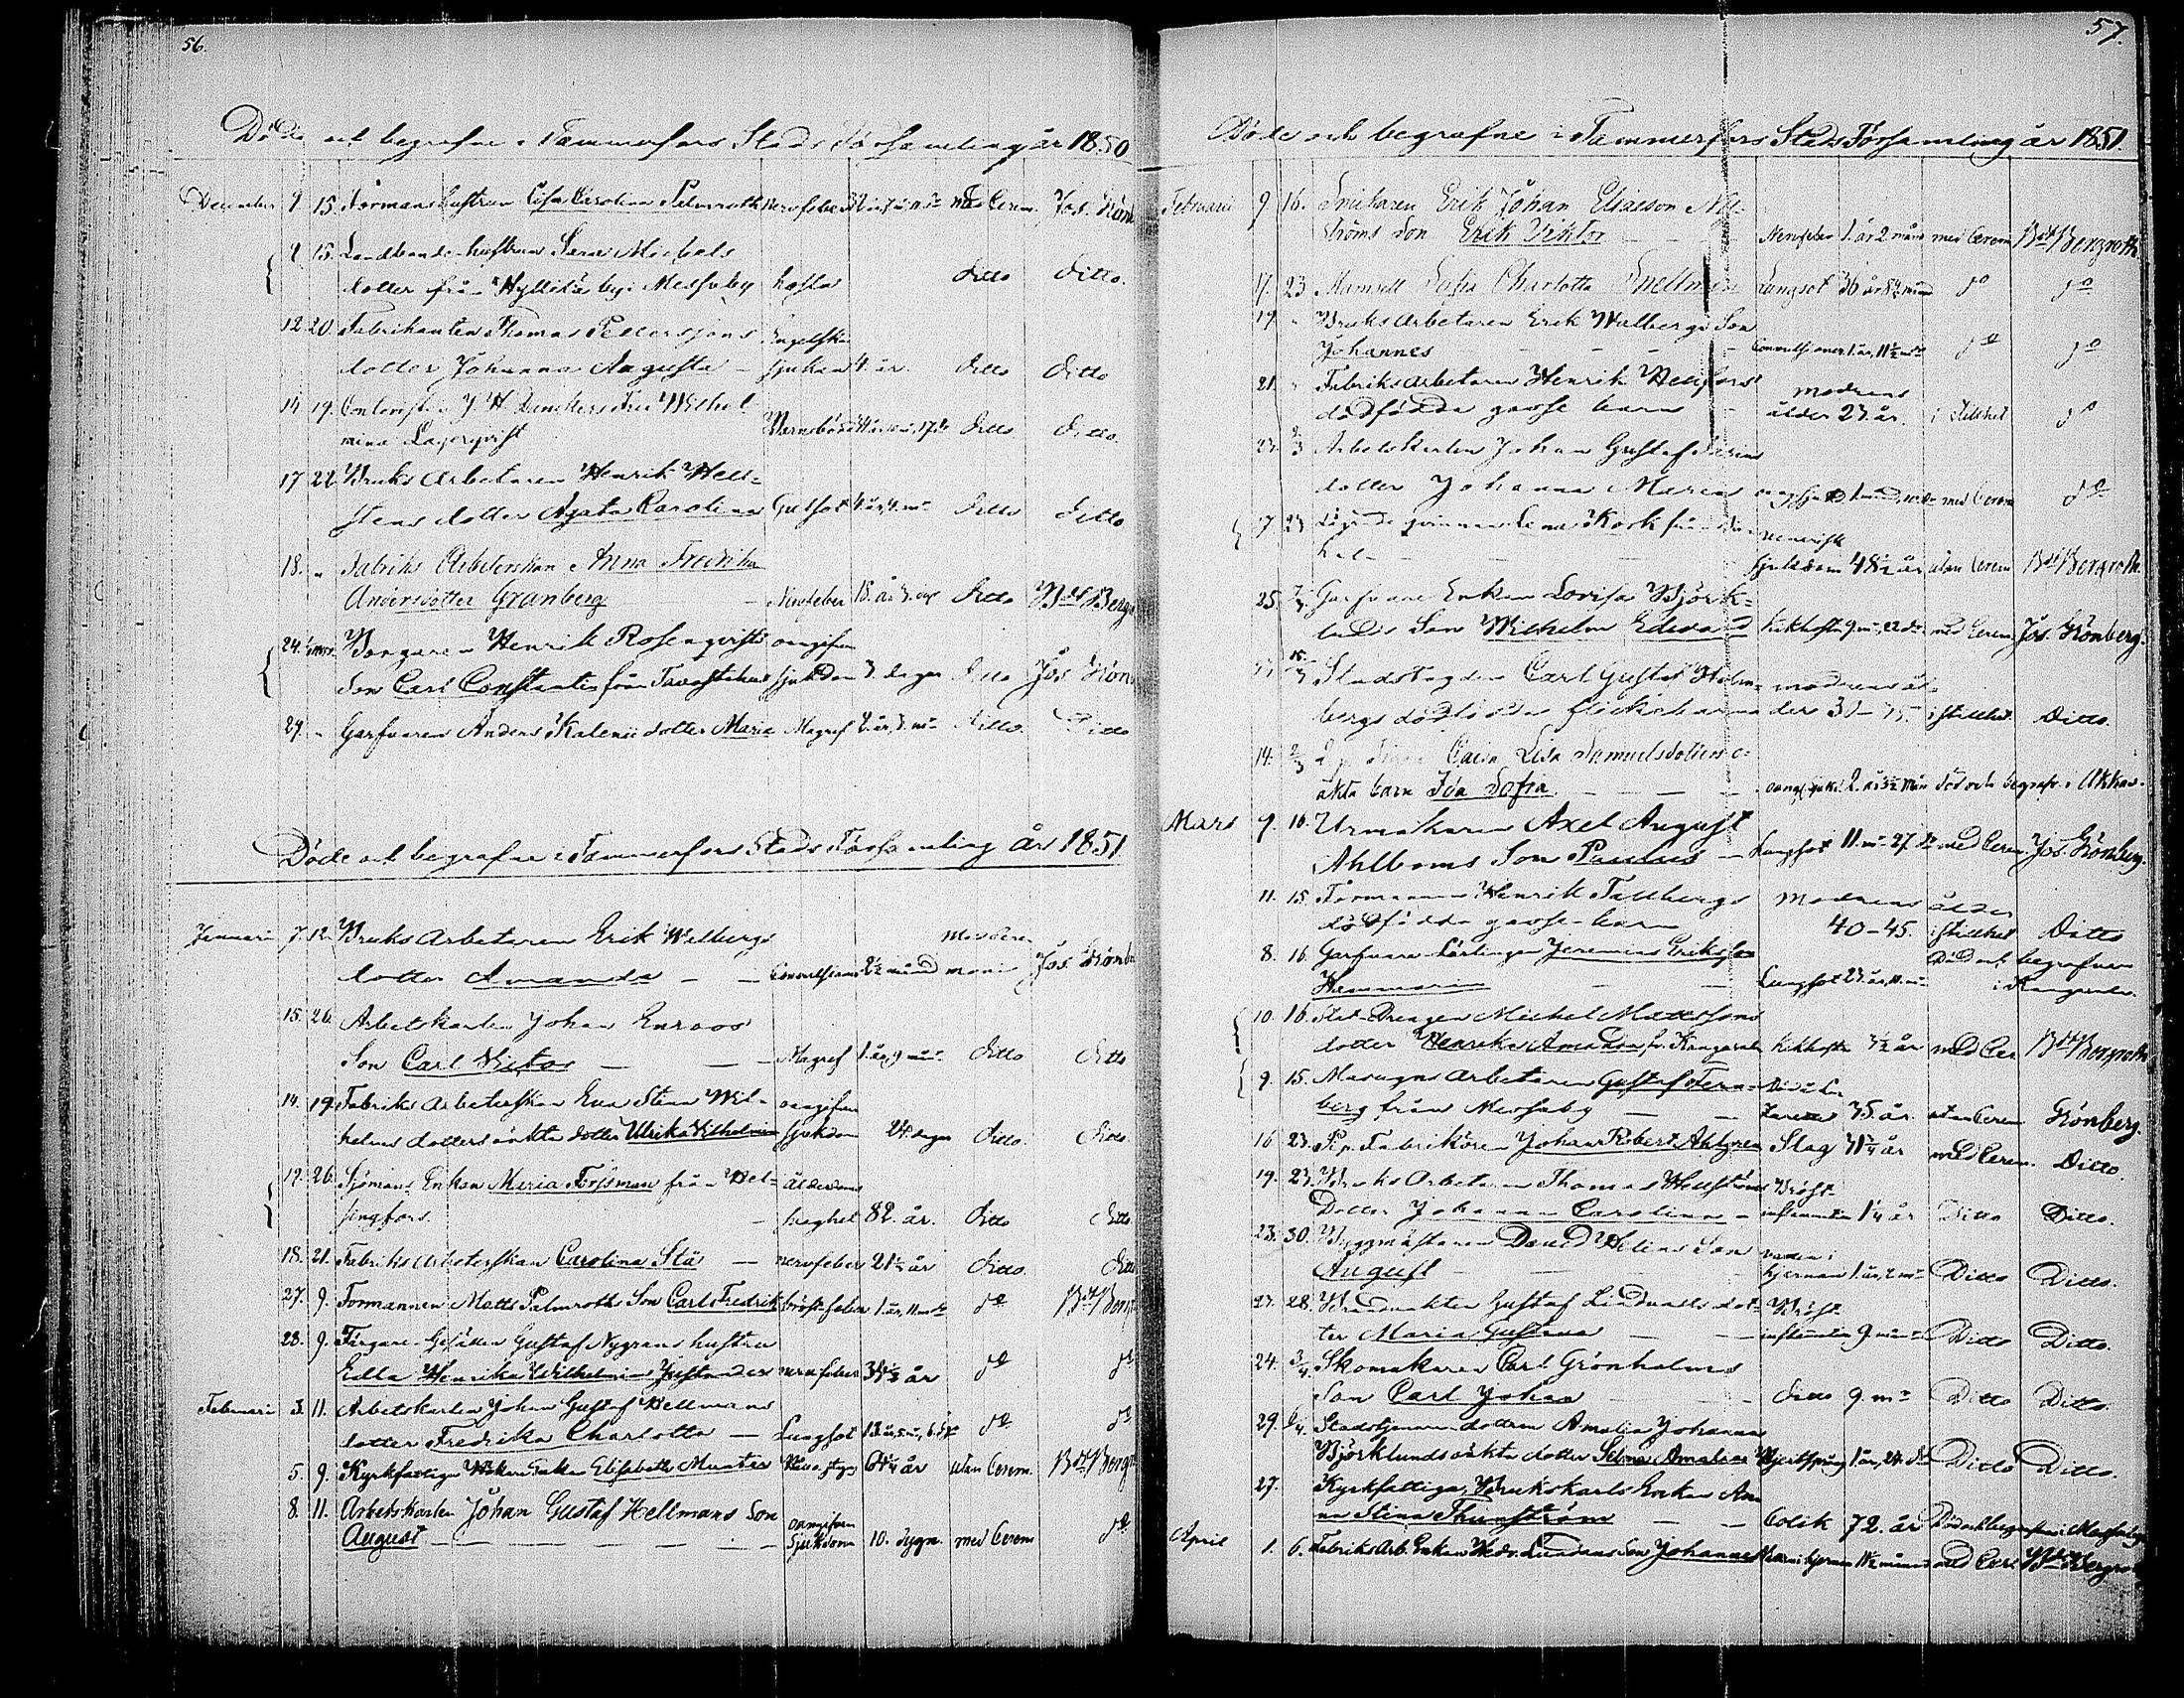 56.
Döde och begrafne i Tammerfors Stads Församling år 1850
December 9. 15. Formans hustrun Lisa Carolina Palmroth nervfeber med Cerem. Jos. Grönb
9 15. Landbonde hustrun Sara Michels
dotter från Hyllilä by i Messuby hosta ditto ditto.
12 20. Fabrikanten Thomas Pettersons Engelska
dotter Johanna Augusta – sjukan 4 år. ditto ditto
14 19. Contoristen J. H. Dunckers Fru Wilhel-
mina Lagerqvist Barnsbörd 17 d. ditto ditto.
17 22. Bruks Arbetaren Henrik Hell-
stens dotter Agata Carolina Gulsot ditto ditto
18. " Fabriks Arbeterskan Anna Fredrika
Andersdotter Granberg – Nervfeber 18. år 3. dgr ditto Bergr
24. Borgaren Henrik Rosenqvists oangifven
Son Carl Constantin från Tavastehus sjukdom 3. dagar ditto Jos. Grönb
29. " Garfvaren Anders Kalenii dotter Maria Magref 2. år, 3. m. ditto Ditto
Döde och begrafne i Tammerfors Stads Församling År 1851
Januari 7. 12. Bruks Arbetaren Erik Walbergs Med Cere-
dotter Amanda – – Convulsioner 2½ månad moni Jos. Grönb
15. 26. Arbetskarlen Johan Enroos
Son Carl Victor – – Magref 1. år 9 mån. ditto ditto
14. 19. Fabriks Arbeterskan Eva Stina Wil- oangifven
helms dotters oäkta dotter Ulrika Vilhelmina sjukdom 24. dagar ditto. ditto.
19. 26. Sjömans Enkan Maria Forssman från Hel- ålderdoms
singfors. – svaghet 82. år. ditto ditto.
18. 21. Fabriks Arbeterskan Carolina Stå – nervfeber 21½ år ditto. ditto
27. 9. Formannen Matts Palmroths Son Carl Fredrik bröstfeber 1. år, 11 mdr do Bergr
28. 9. Färgare Gesällen Gustaf Nygrens hustru
Edla Henrika Wilhelmina Justander nervfeber 34½ år do do
Februari 3. 11. Arbetskarlen Johan Gustaf Hellmans
dotter Fredrika Charlotta – Lungsot do do
5. 9. Kyrkfattiga Enkan Elisabeth Munter 64¼ år utan Cerem. Bergr
8. 11. Arbetskarlen Johan Gustaf Hellmans Son oangifven
August – – – – – Sjukdom 10. dygn. med Cerem do
57.
Döde och begrafne i Tammerfors Stads Församling år 1851.
Februarii 9 16. Snickaren Erik Johan Eliaeson Ny-
ströms son Erik Viktor – – Nervfeber 1. år 2 mån med Cerem Bergroth
17. 23 Mamsell Sofia Charlotta Snellman Lungsot 36 år do do
19. " Bruks Arbetaren Erik Walbergs Son
Johannes – – – – Convulsioner 1. år, 11½ m do do
21. " Fabriks Arbetaren Henrik Hellfors' modrens
dödfödda gosse barn – ålder 23. år. i stillhet do
23. 2/3 Arbetskarlen Johan Gustaf
dotter Johanna Maria oang. sjukd 1. månad med Cerem do
17 23 qvinnan Lena Kork från venerisk
– – – sjukdom 48½ år utan Cerem Bergroth
25. Garfvare Enkan Lovisa Björk-
lunds Son Wilhelm Edvard kikhosta 9. m. med Cerem. Jos. Grönberg.
Stadsfogden Carl Gustaf Holm- modrens ål-
bergs dödfödda flickebarn der i stillhet. Ditto.
14. 2/3 Pigan Caisa Lisa Samuelsdotters o-
äkta barn Ida Sofia. – – – oang. sjukd. 2. år 3½ mån död och begrafn. i Akkas.
Mars 9. 16. Urmakaren Axel August
Ahlboms Son Paulus – Lungsot 11. m. 27. d. med Cerem. Jos. Grönberg.
11. 15. Formannen Henrik Tallbergs Modrens ålder
dödfödda gosse-barn 40–45. i stillhet Ditto
8. 16. Garfvare Lärlingen Jeremias Eriksson Död och begrafven
Hemmarin – – Lungsot 23. år, 11. m. i Kangasala.
10. 16. Stat-Drengen Michel Mattssons
dotter Henrika Amanda fr. Kangasala kikhosta 3½ år med Cer Bergroth
9. 15. Masugns Arbetaren Gustaf Tern- Död i La-
berg från Messuby – – zarettet 35. år utan Cerem Grönberg.
16 23. Pip. Fabrikören Johan Robert Ahlgren Slag 31¼ år med Cerem. Ditto
19. 23. Bruks Arbetaren Thomas Hellströms Bröst-
Dotter Johanna Carolina – inflammation 1¼ år Ditto Ditto.
23. 30. Byggmästaren David Helins Son vatten i
August – – – hjernan 1. år, 2 m. Ditto Ditto.
23. 28. Brandvakten Gustaf Lindvalls dot- Bröst-
ter Maria Gustava – – inflammation 9. mån Ditto Ditto.
24. 3/4 Skomakaren Carl Grönholms
Son Carl Johan – – ditto 9. m. Ditto Ditto.
29. 6/4 Stadstjenaredottren Amalia Johanna
Björklunds oäkta dotter Selma Amalia 1. år, 24. d. Ditto Ditto.
27. Kyrkfattiga, Brukskarls Enkan An-
na Stina Thunström – – Colik 72. år Död och begrafven i Messuby
April 1. 6. Fabriks Arb. Enkan Hedv. Lundans Son Johannes Vatten i hjernan 11½ månad med Cere Bergroth